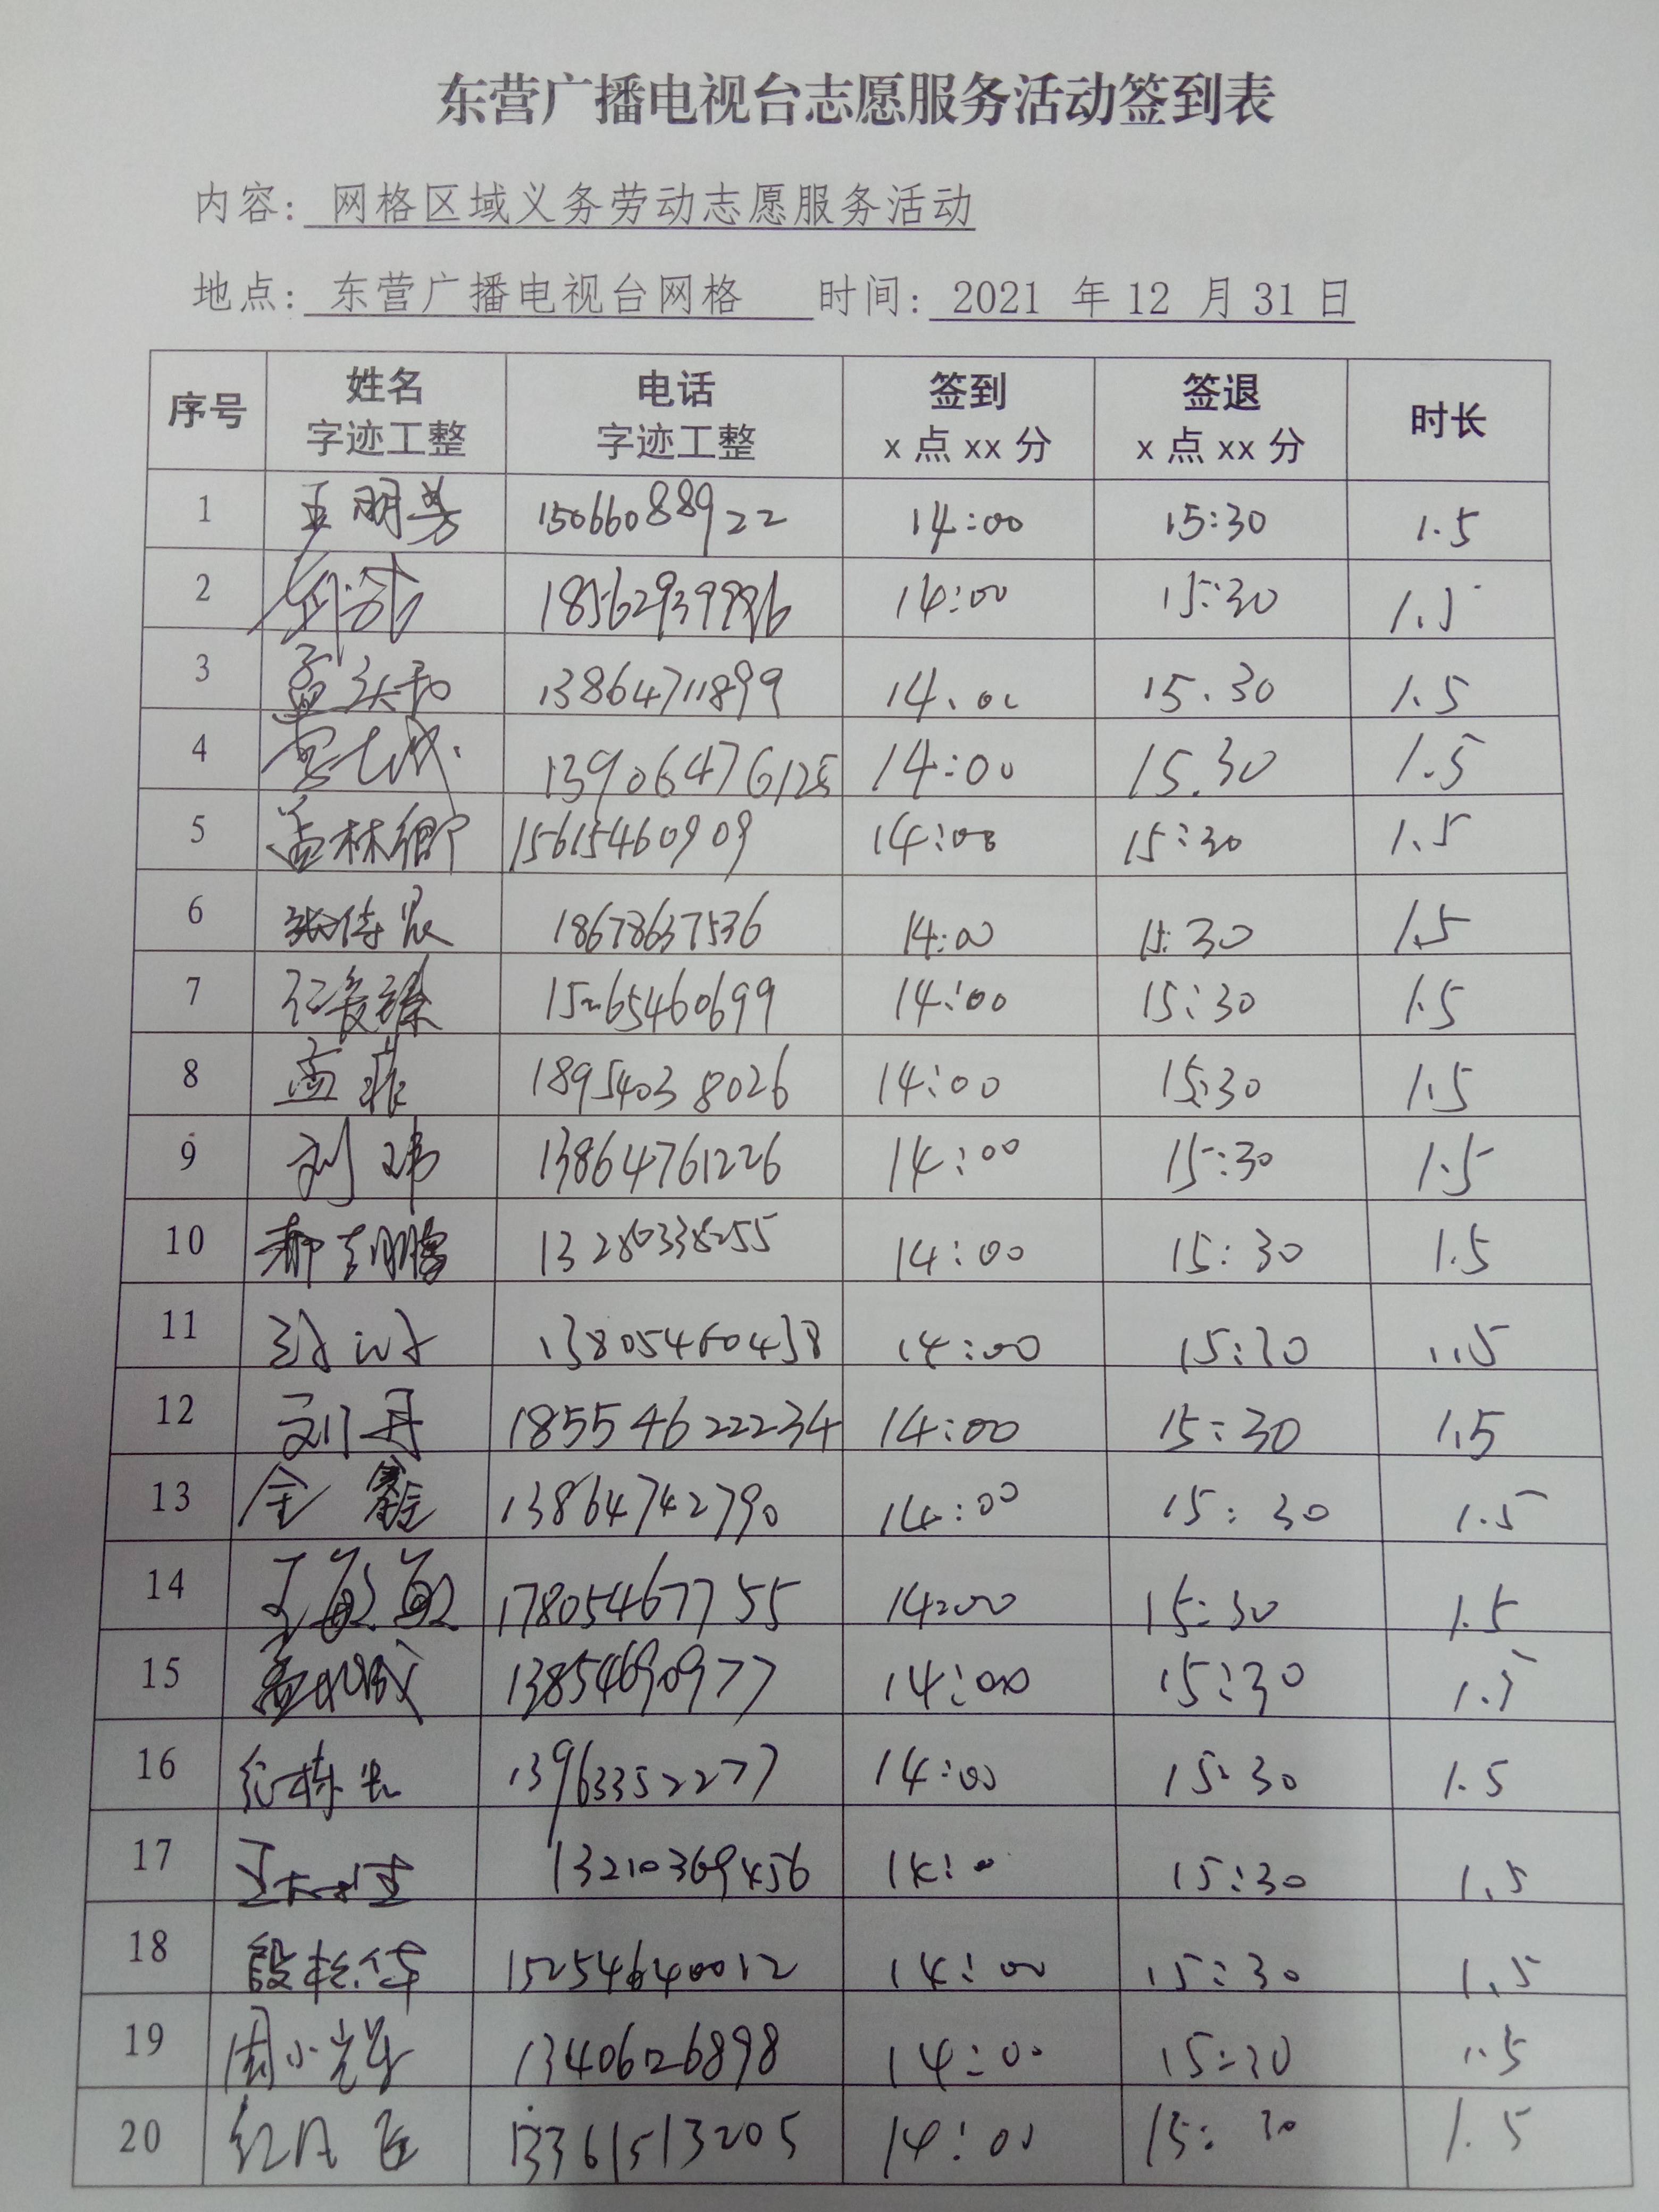 东营广播电视台志愿服务活动签到表
内容: 网格区域义务劳动志愿服务活动
地点: 东营广播电视台网格 时间: 2021 年 12 月 31 日
序号 姓名 字迹工整 电话 字迹工整 签到 x 点 xx 分 签退 x 点 xx 分 时长
1 王明芳 15066088922 14:00 15:30 1.5
2 14:00 15:30 1.5
3 13864711899 14.00 15.30 1.5
4 13906476125 14:00 15.30 1.5
5 盖林卿 15615460909 14:00 15:30 1.5
6 18678637536 14:00 15:30 1.5
7 15265460699 14:00 15:30 1.5
8 孟菲 18954038026 14:00 15:30 1.5
9 刘玮 13864761226 14:00 15:30 1.5
10 14:00 15:30 1.5
11 13805460438 14:00 15:30 1.5
12 刘丹 18554622234 14:00 15:30 1.5
13 13864742790 14:00 15:30 1.5
14 王敏敏 17805467755 14:00 15:30 1.5
15 13854690977 14:00 15:30 1.5
16 13963352277 14:00 15:30 1.5
17 13210369456 15:30 1.5
18 段松华 15254640012 14:00 15:30 1.5
19 周小光 14:00 15:30 1.5
20 13361513205 14:00 15:30 1.5